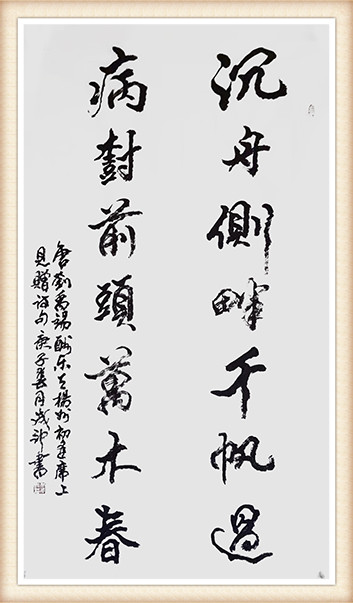 沉舟側畔千帆過
病樹前頭萬木春
唐劉禹錫酬乐天揚州初逢席上
見贈诗句庚子月書